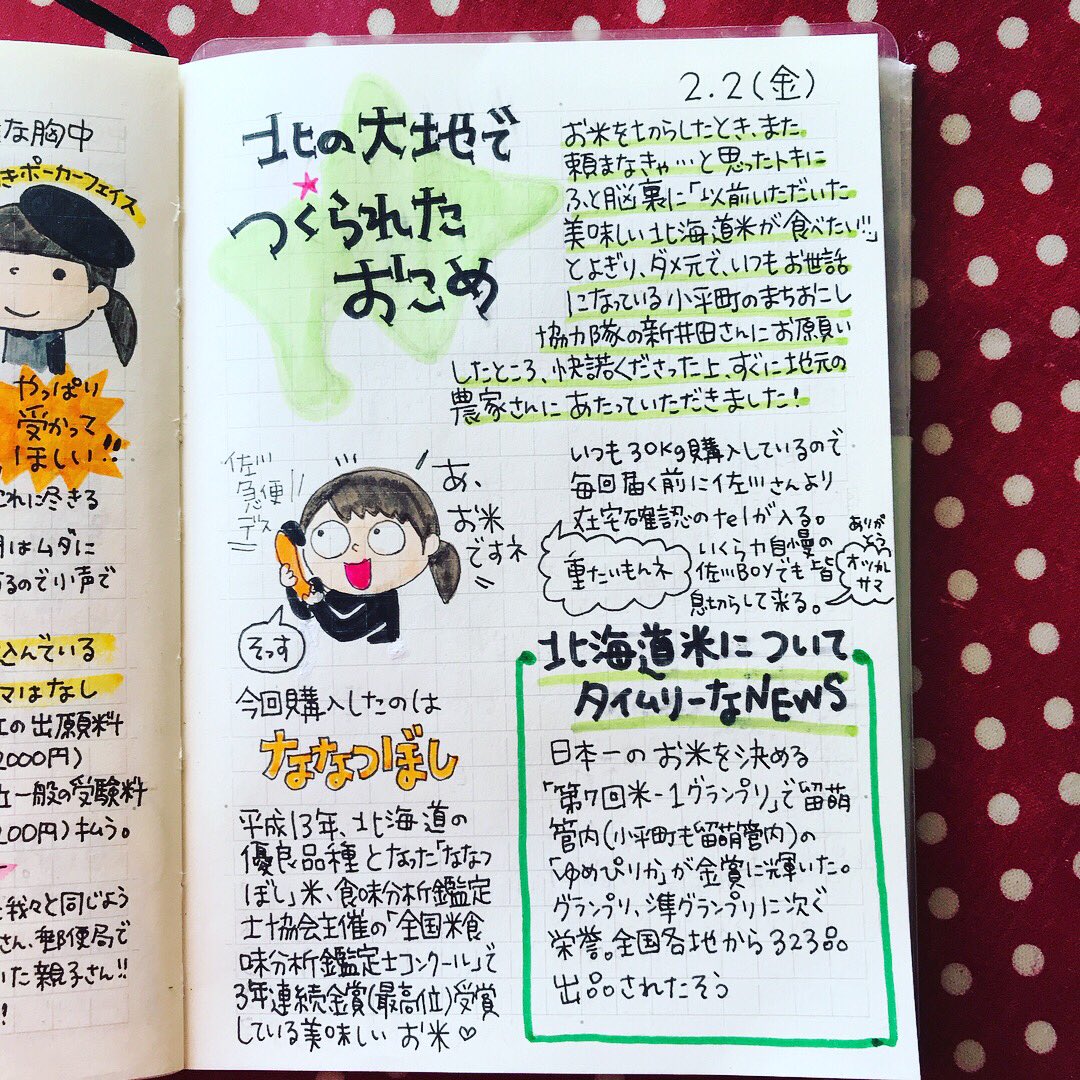 な胸中
きポーカーフェイス
やっぱり
受かって
ほしい!!
これに尽きる
月はムダに
るので小声で
込んでいる
マはなし
立の出願料
2000円)
立一般の受験料
200円)払う。
と我々と同じよう
さん、郵便局で
いた親子さん!!
!
2.2(金)
北の大地で
つくられた
おこめ
お米を切らしたとき、また
頼まなきゃ…と思ったトキに
ふと脳裏に「以前いただいた
美味しい北海道米が食べたい!!」
とよぎり、ダメ元で、いつもお世話
になっている小平町のまちおこし
協力隊の新井田さんにお願い
したところ、快諾くださった上、すぐに地元の
農家さんにあたっていただきました!
佐川
急便
デス
あ、
お米
ですネ
そっす
いつも30kg購入しているので
毎回届く前に佐川さんより
在宅確認のtelが入る。
いくら力自慢の
佐川BOYでも皆
息切らして来る。
重たいもんネ
ありが
とうっ
オツカレ
サマ
今回購入したのは
ななつぼし
平成13年、北海道の
優良品種となった「ななつ
ぼし」米、食味分析鑑定
士協会主催の「全国米食
味分析鑑定士コンクール」で
3年連続金賞(最高位)受賞
している美味しいお米♡
北海道米について
タイムリーなNEWS
日本一のお米を決める
「第7回米-1グランプリ」で留萌
管内(小平町も留萌管内)の
「ゆめぴりか」が金賞に輝いた。
グランプリ、準グランプリに次ぐ
栄誉。全国各地から323品
出品されたそう